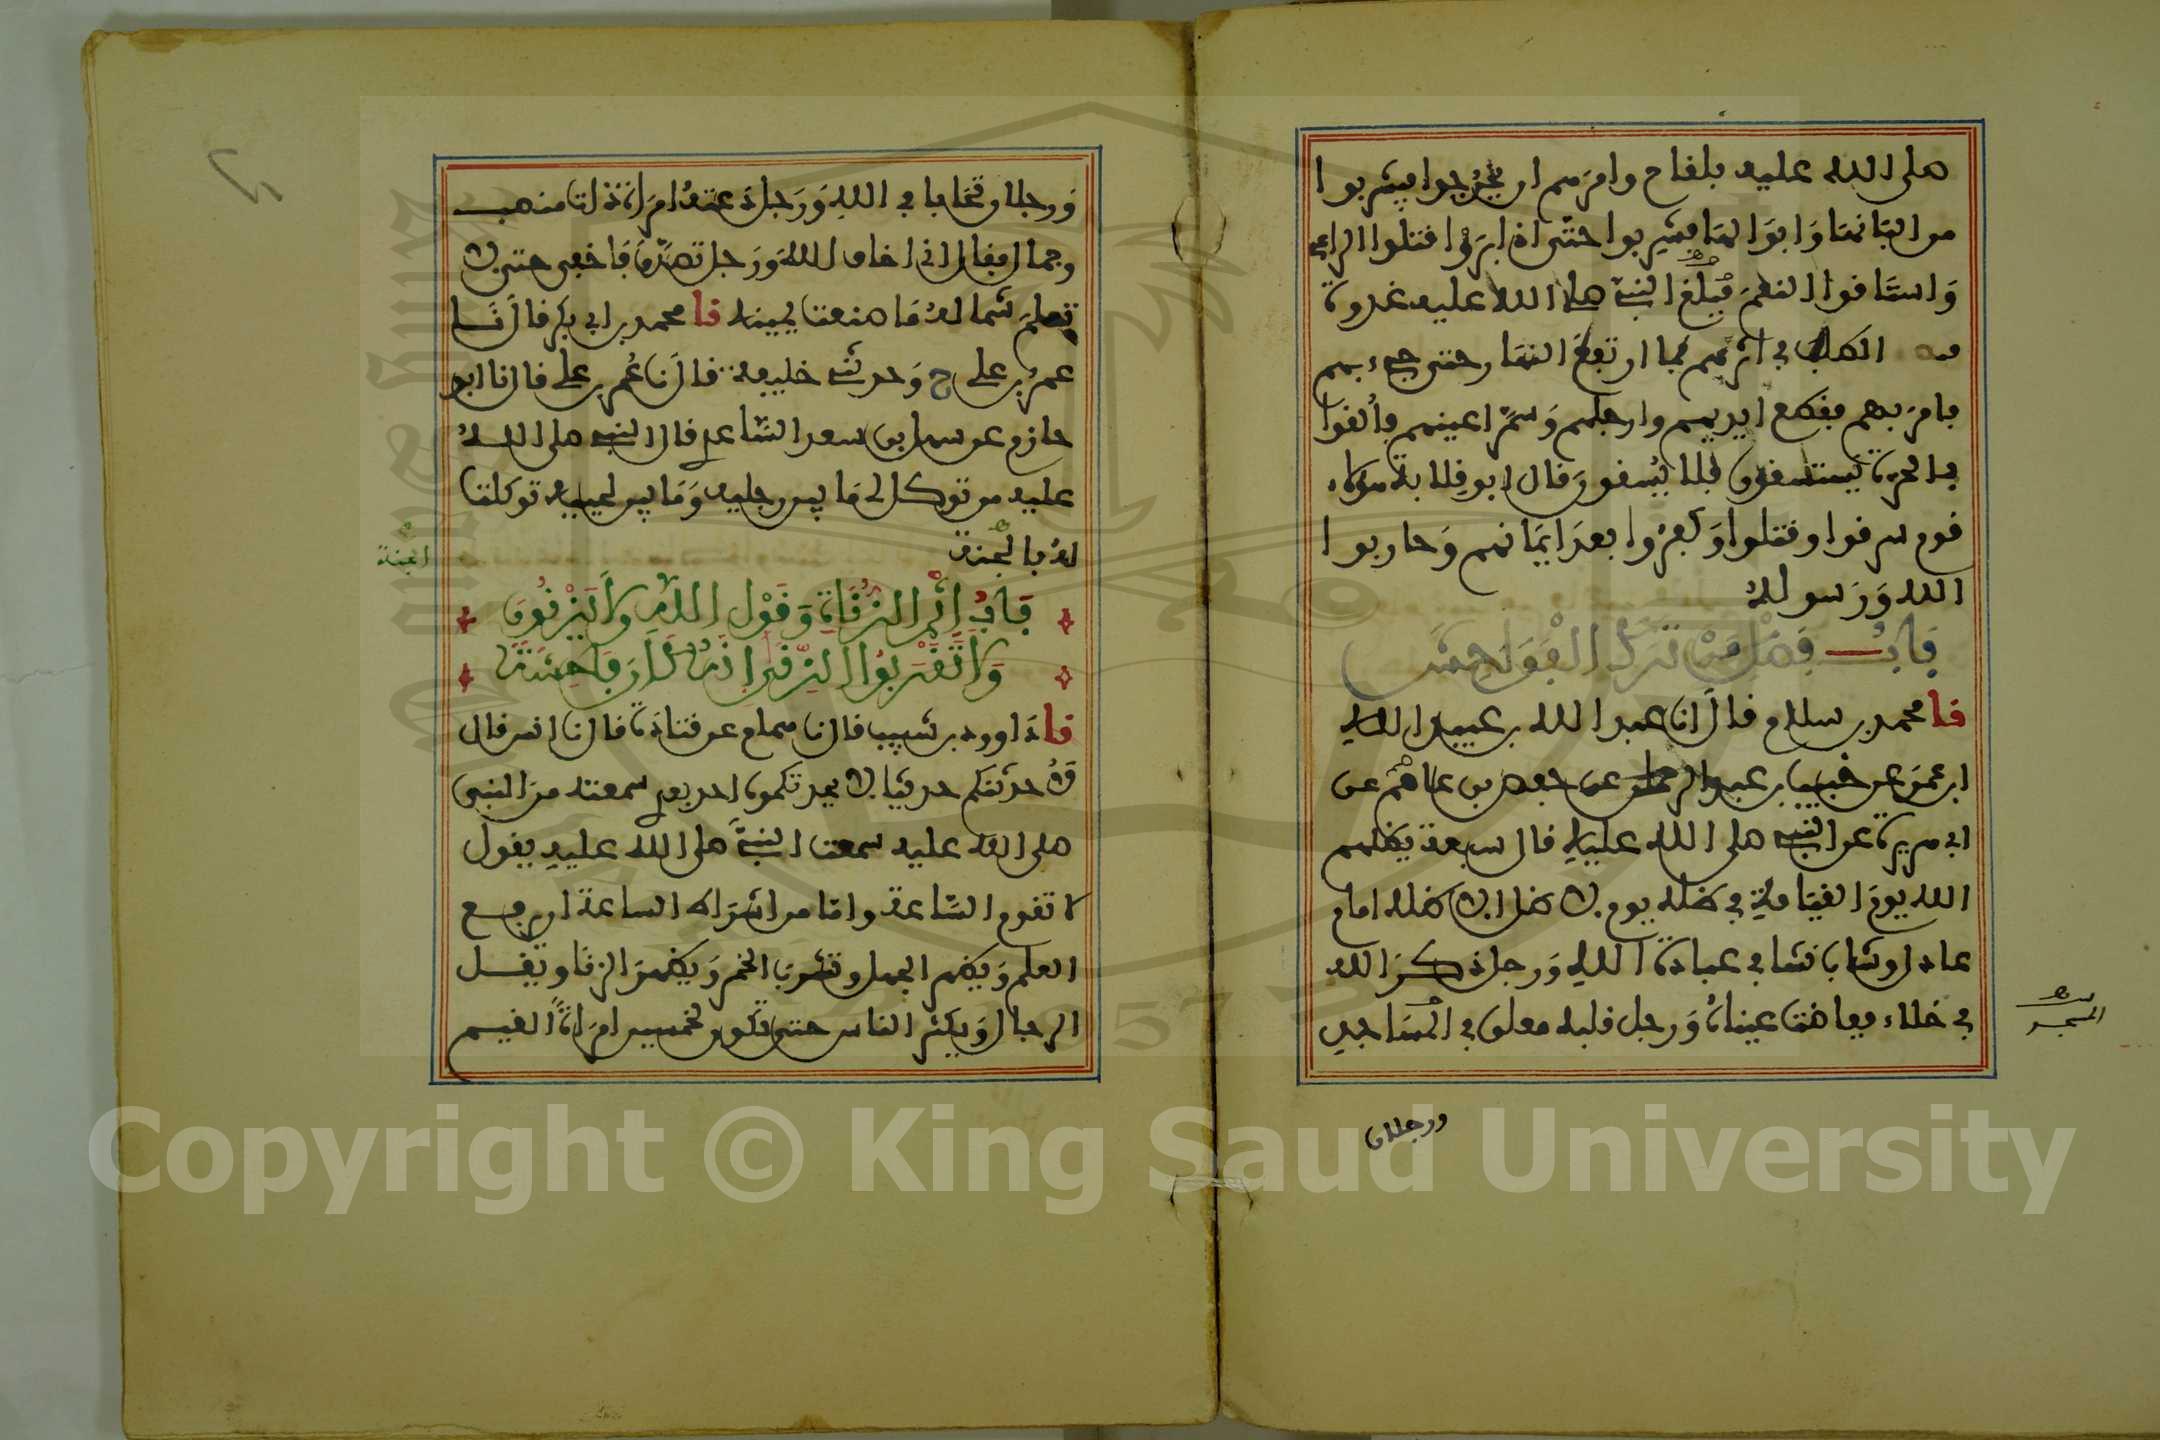 صلى الله عليه بلقاح وامرهم ان يخرجوا فيشربوا
من البانها وابوالها فشربوا حتى اذا برؤا قتلوا الراعي
واستاقوا النعم فبلغ النبي صلى الله عليه غدوة
الطلب في اثرهم فما ارتفع النهار حتى جيء بهم
فامر بهم فقطع ايديهم وارجلهم وسمر اعينهم فألقوا
بالحرة يستسقون فلا يسقون قال ابو قلابة هؤلاء
قوم سرقوا وقتلوا وكفروا بعد ايمانهم وحاربوا
الله ورسوله
باب فضل من ترك الفواحش
نا محمد بن سلام قال انا عبد الله بن عبيد الله
ابن عمر عن خبيب بن عبد الرحمن عن حفص بن عاصم عن
ابي هريرة عن النبي صلى الله عليه قال سبعة يظلهم
الله يوم القيامة في ظله يوم لا ظل الا ظله امام
عادل وشاب نشا في عبادة الله ورجل ذكر الله
في خلاء ففاضت عيناه ورجل قلبه معلق في المساجد
المسجد
ورجلان
ورجلان تحابا في الله ورجل دعته امراة ذات منصب
وجمال فقال اني اخاف الله ورجل تصدق فاخفى حتى لا
تعلم شماله ما صنعت يمينه نا محمد بن ابي بكر قال نا
عمر بن علي ح وحدثني خليفة قال نا عمر بن علي قال نا ابو
حازم عن سهل بن سعد الساعدي قال النبي صلى الله
عليه من توكل لي ما بين رجليه وما بين لحييه توكلت
له بالجنة
الجنة
باب اثم الزناة وقول الله ولا يزنون
ولا تقربوا الزنى انه كان فاحشة
نا داوود بن شبيب قال نا همام عن قتادة قال نا انس قال
لاحدثنكم حديثا لا يحدثكموه احد بعدي سمعته من النبي
صلى الله عليه سمعت النبي صلى الله عليه يقول
لا تقوم الساعة واما من اشراط الساعة ان يرفع
العلم ويظهر الجهل وتشرب الخمر ويظهر الزنا ويقل
الرجال ويكثر الناس حتى تكون لخمسين امراة القيم
Copyright © King Saud University
1957